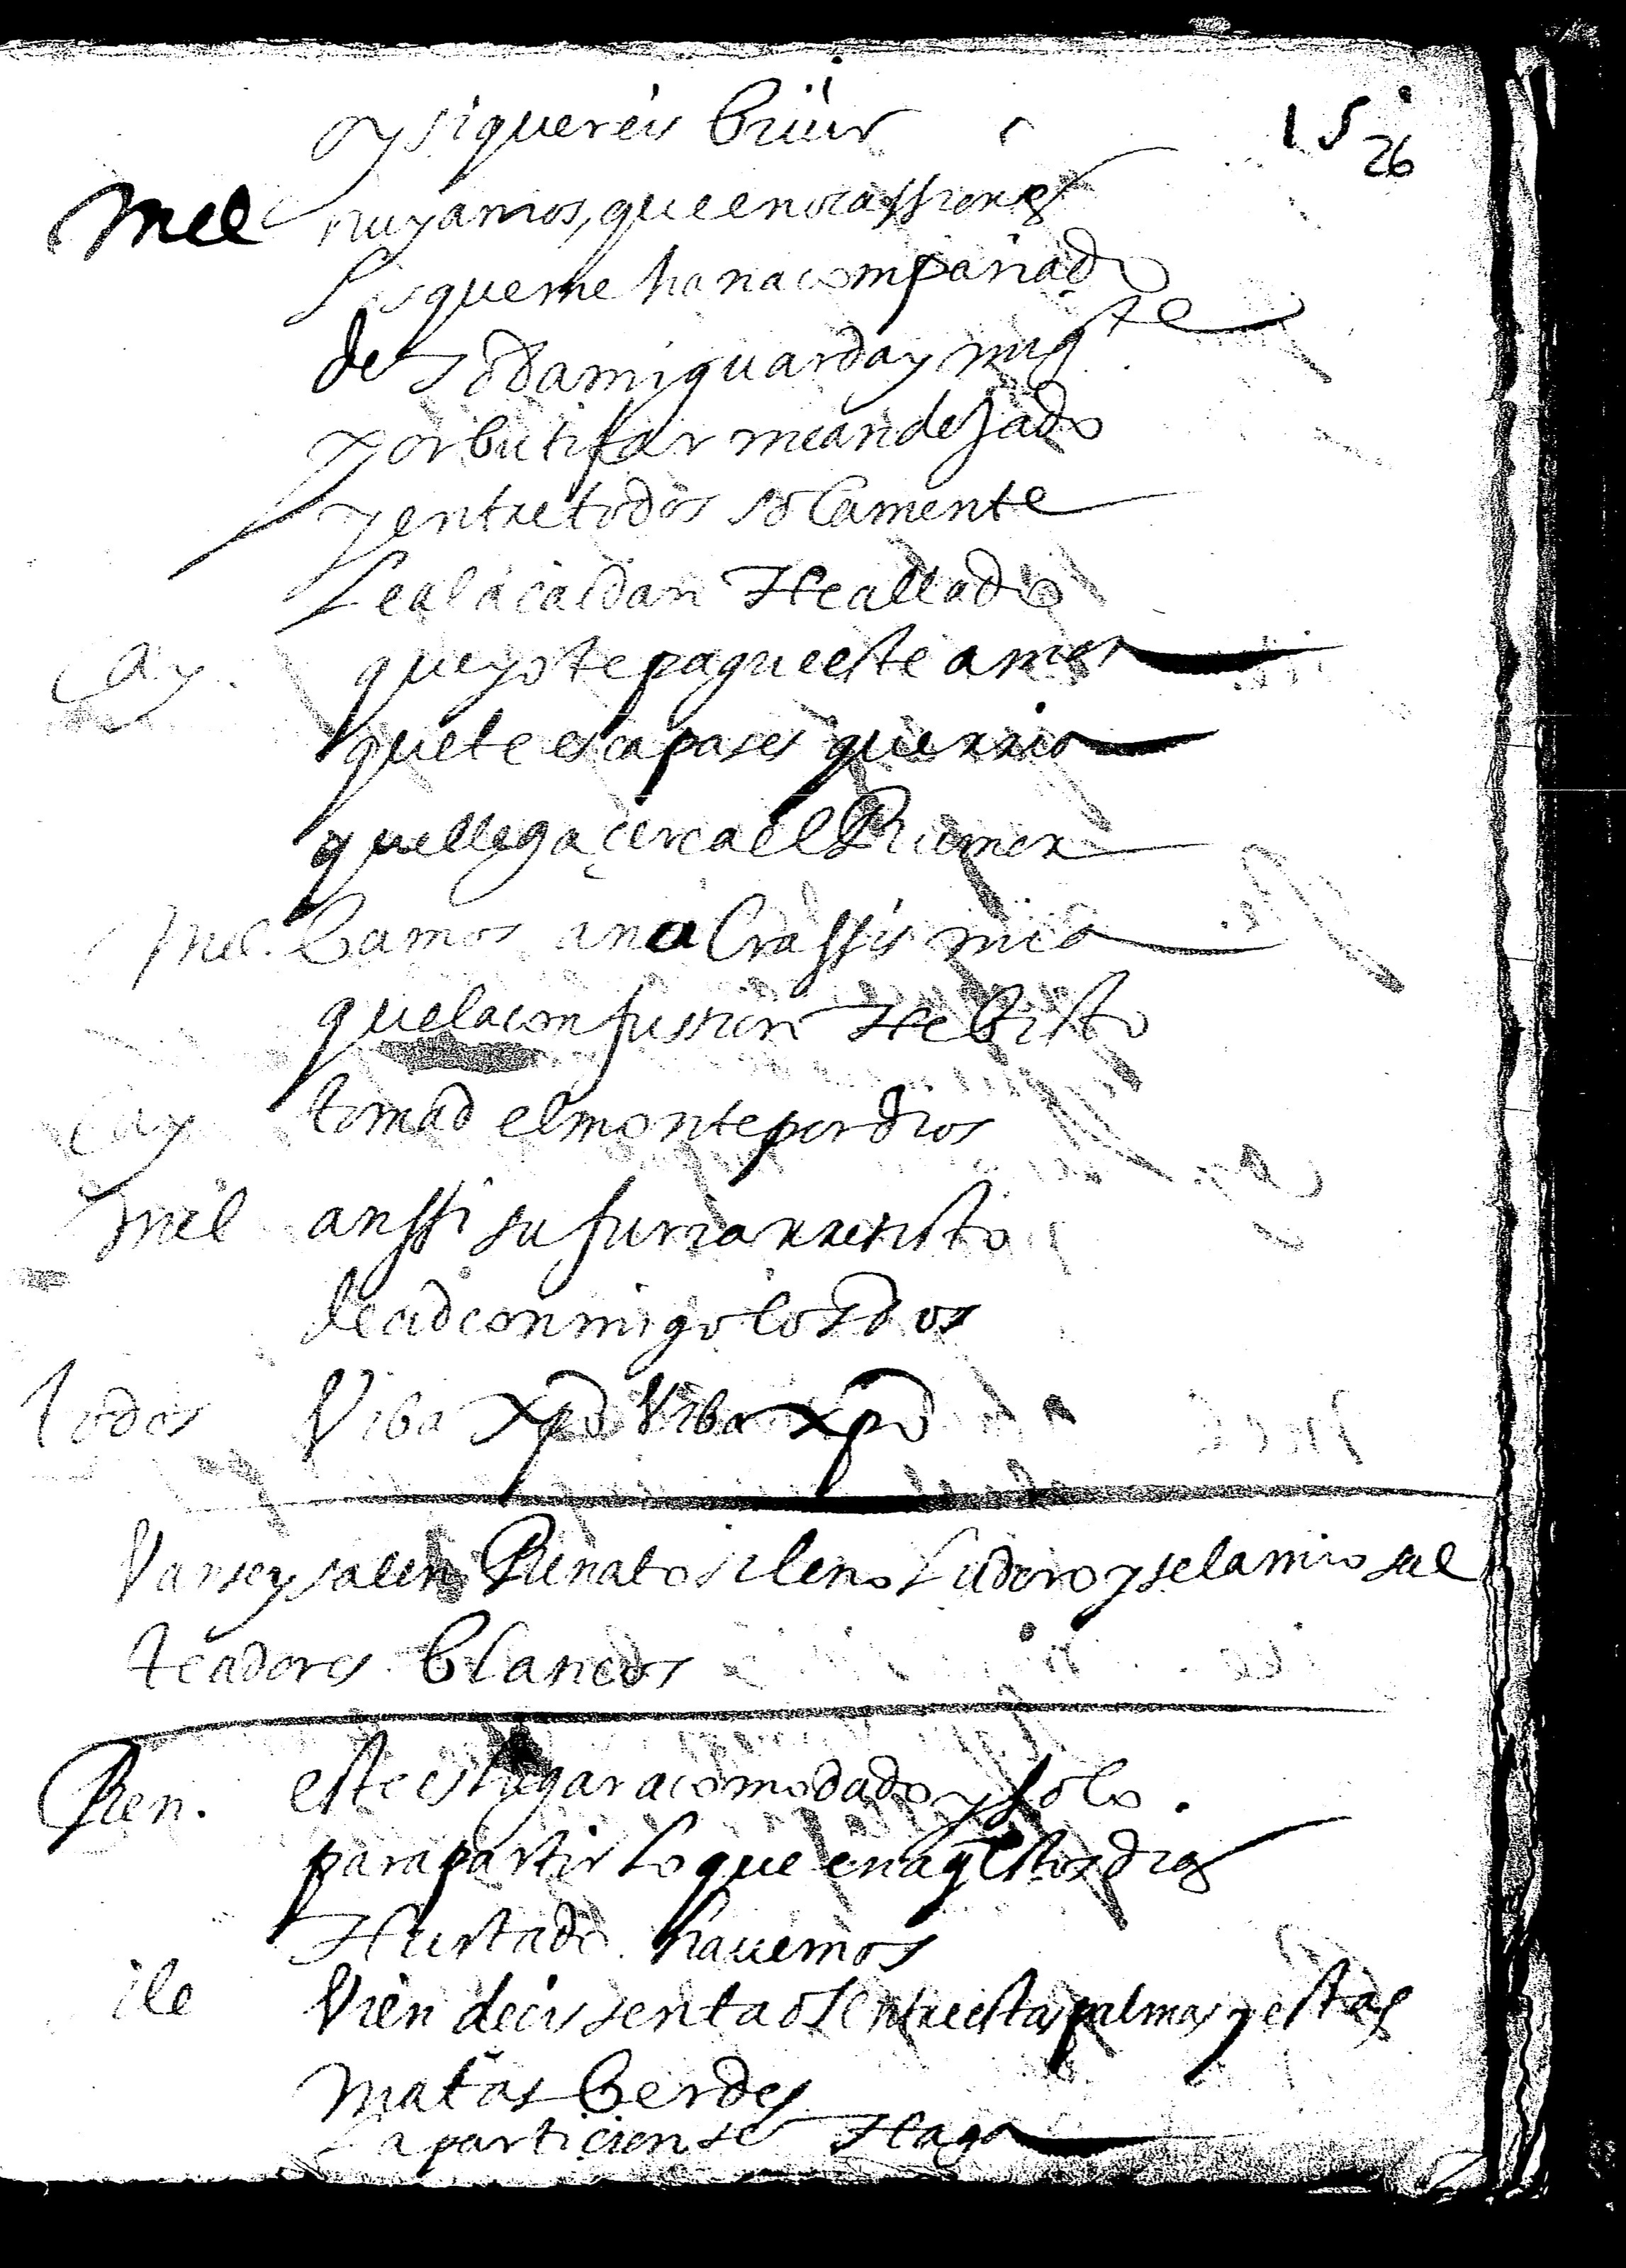 15
26
oy si quereis biuir
Mel huyamos, que en ocassiones
los que me han acompañado
de toda mi guarda y mi gte
por butifar me an dejado
y entre todos solamente
leal a caldan He allado
Cay. que yo te pague este amor
que te escapases querria
que llega cerca el Rumor
Mel. Bamos anacrassis mia
que la confussion He bisto
Cay tomad el monte por dios
Mel anssi su furia rresisto
decid conmigo los dos
todos Viba xpo Viba xpo
Vanse y salen Renato sileno Lidoro y selamio sal
teadores blancos
Ren. este es lugar acomodado y solo.
para partir lo que en aqestos dias
Hurtado hauemos
sile Vien decis sentaos entre estas palmas y estas
matas berdes
la particion se Haga